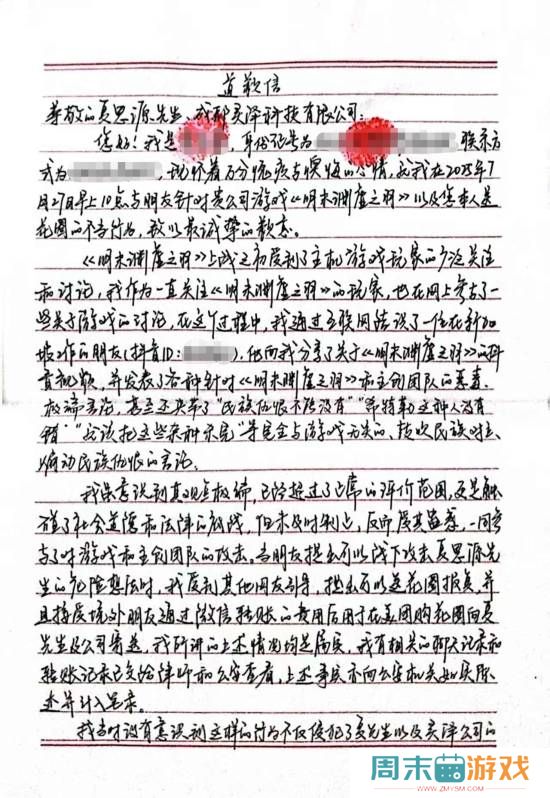 道歉信
尊敬的夏思源先生、成都灵泽科技有限公司:
您好!我是 ,身份证号为 联系方
式为 ,现怀着万分愧疚与悔的心情,就我在2025年7
月27日早上10点与朋友针对贵公司游戏《明末渊虚之羽》以及您本人送
花圈的不当行为,致以最诚挚的歉意。
《明末渊虚之羽》上线之初受到了主机游戏玩家的广泛关注
和讨论,我作为一直关注《明末渊虚之羽》的玩家,也在网上参与了一
些关于游戏的讨论,在这个过程中,我通过互联网结识了一位在新加
坡工作的朋友(抖音ID: ),他向我分享了关于《明末渊虚之羽》的抖
音视频,并发表了各种针对《明末渊虚之羽》和主创团队的恶毒、
极端言论,甚至还夹带了“民族仇恨不该没有”“希特勒这种人没有
错”“应该把这些杂种杀完”等完全与游戏无关的、挑起民族对立、
煽动民族仇恨的言论。
我虽意识到其观点极端,已经超过了正常的评价范围,更是触
碰了社会道德和法律的底线,但未及时制止,反而受其蛊惑,一同参
与了对游戏和主创团队的攻击。当朋友提出可以线下攻击夏思源先
生的危险想法时,我受到其他网友引导,提出可以送花圈报复,并
且接受境外朋友通过微信转账的费用后用于在美团购花圈向夏
先生及公司寄送,我所讲的上述情况均是属实,我有相关的聊天记录和
转账记录已交给律师和公安查看,上述事实亦向公安机关如实陈
述并计入笔录。
我当时没有意识到这样的行为不仅侵犯了夏先生以及灵泽公司的
周末游戏
WWW.ZMYSM.COM